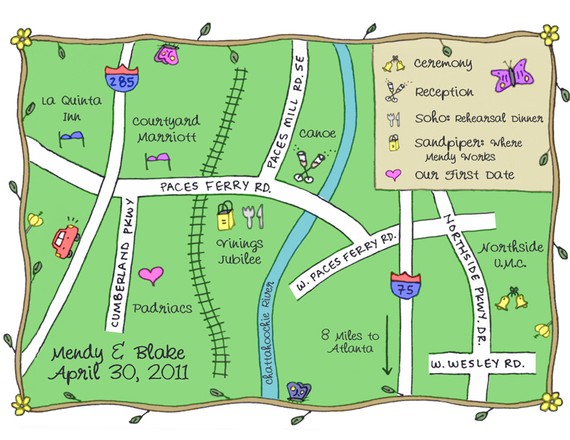 285
La Quinta
Inn
Courtyard
Marriott
PACES MILL RD. SE
Canoe
Ceremony
Reception
Soho: Rehearsal Dinner
Sandpiper: Where
Mendy Works
Our First Date
PACES FERRY RD.
CUMBERLAND PKWY
Vinings
Jubilee
W. PACES FERRY RD.
NORTHSIDE PKWY. DR.
Northside
U.M.C.
75
Padriacs
Chattahoochie River
8 Miles to
Atlanta
W. WESLEY RD.
Mendy & Blake
April 30, 2011